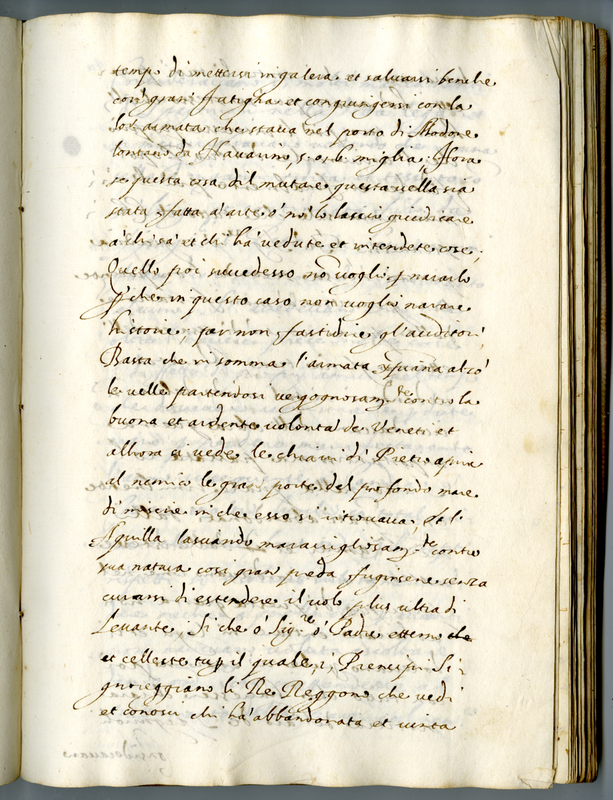 tempo di mettersi in galera et saluarsi benche
con gran fatigha et congiungersi con la
lor armata che staua nel porto di Modone
lontano da Nauarino, 5. o 6. miglia; Hora
se questa cosa del mutare questa uella sia
stata fatta a' arte o' nò lo lascio giudicare
a' chi sa' et chi ha' uedute et intendete cose;
Quello poi sucedesse nō uoglio narrarlo
ꝑche in questo caso non uoglio narrare
historie, par non fastidire gl'auditori,
Basta che in somma l'armata xp̄iana alzò
le uelle partendosi uergognosam.te contro la
buona et ardente uolontà de Veneti et
alhora si uede le chiaui di Pietro aprir
al nemico le gran porte del profondo mare
di miserie in che esso si ritrouaua, et l'
Aquilla lasciando marauigliosam.te contro
sua natura cosi gran preda fugirsene senza
curarsi di estendere il uolo plus ultra di
Leuante, Si che o' Sig.re o' Padre etterno che
et celleste tu ꝑ il quale, i, Prencipi Si-
gnoreggiano li Re Reggono che uedi
et conosci chi ha' abbandonata et uinta